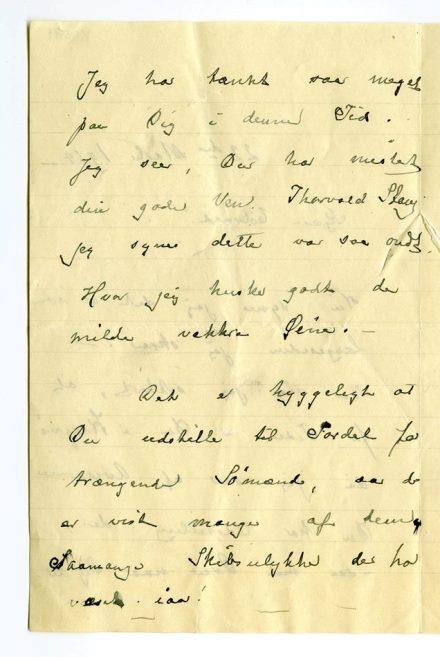 Jeg har tænkt saa meget
paa Dig i denne Tid.
Jeg seer, Du har mistet
din gode Ven Thorvald
jeg synes dette var saa ondt.
Hvor jeg husker godt de
milde vakkre Øine. –
Det er hyggeligt at
Du udstiller til Fordel for
trængende Sømænd, aa der
er vist mange af dem,
Saamange Skibsulykker der har
været iaar!